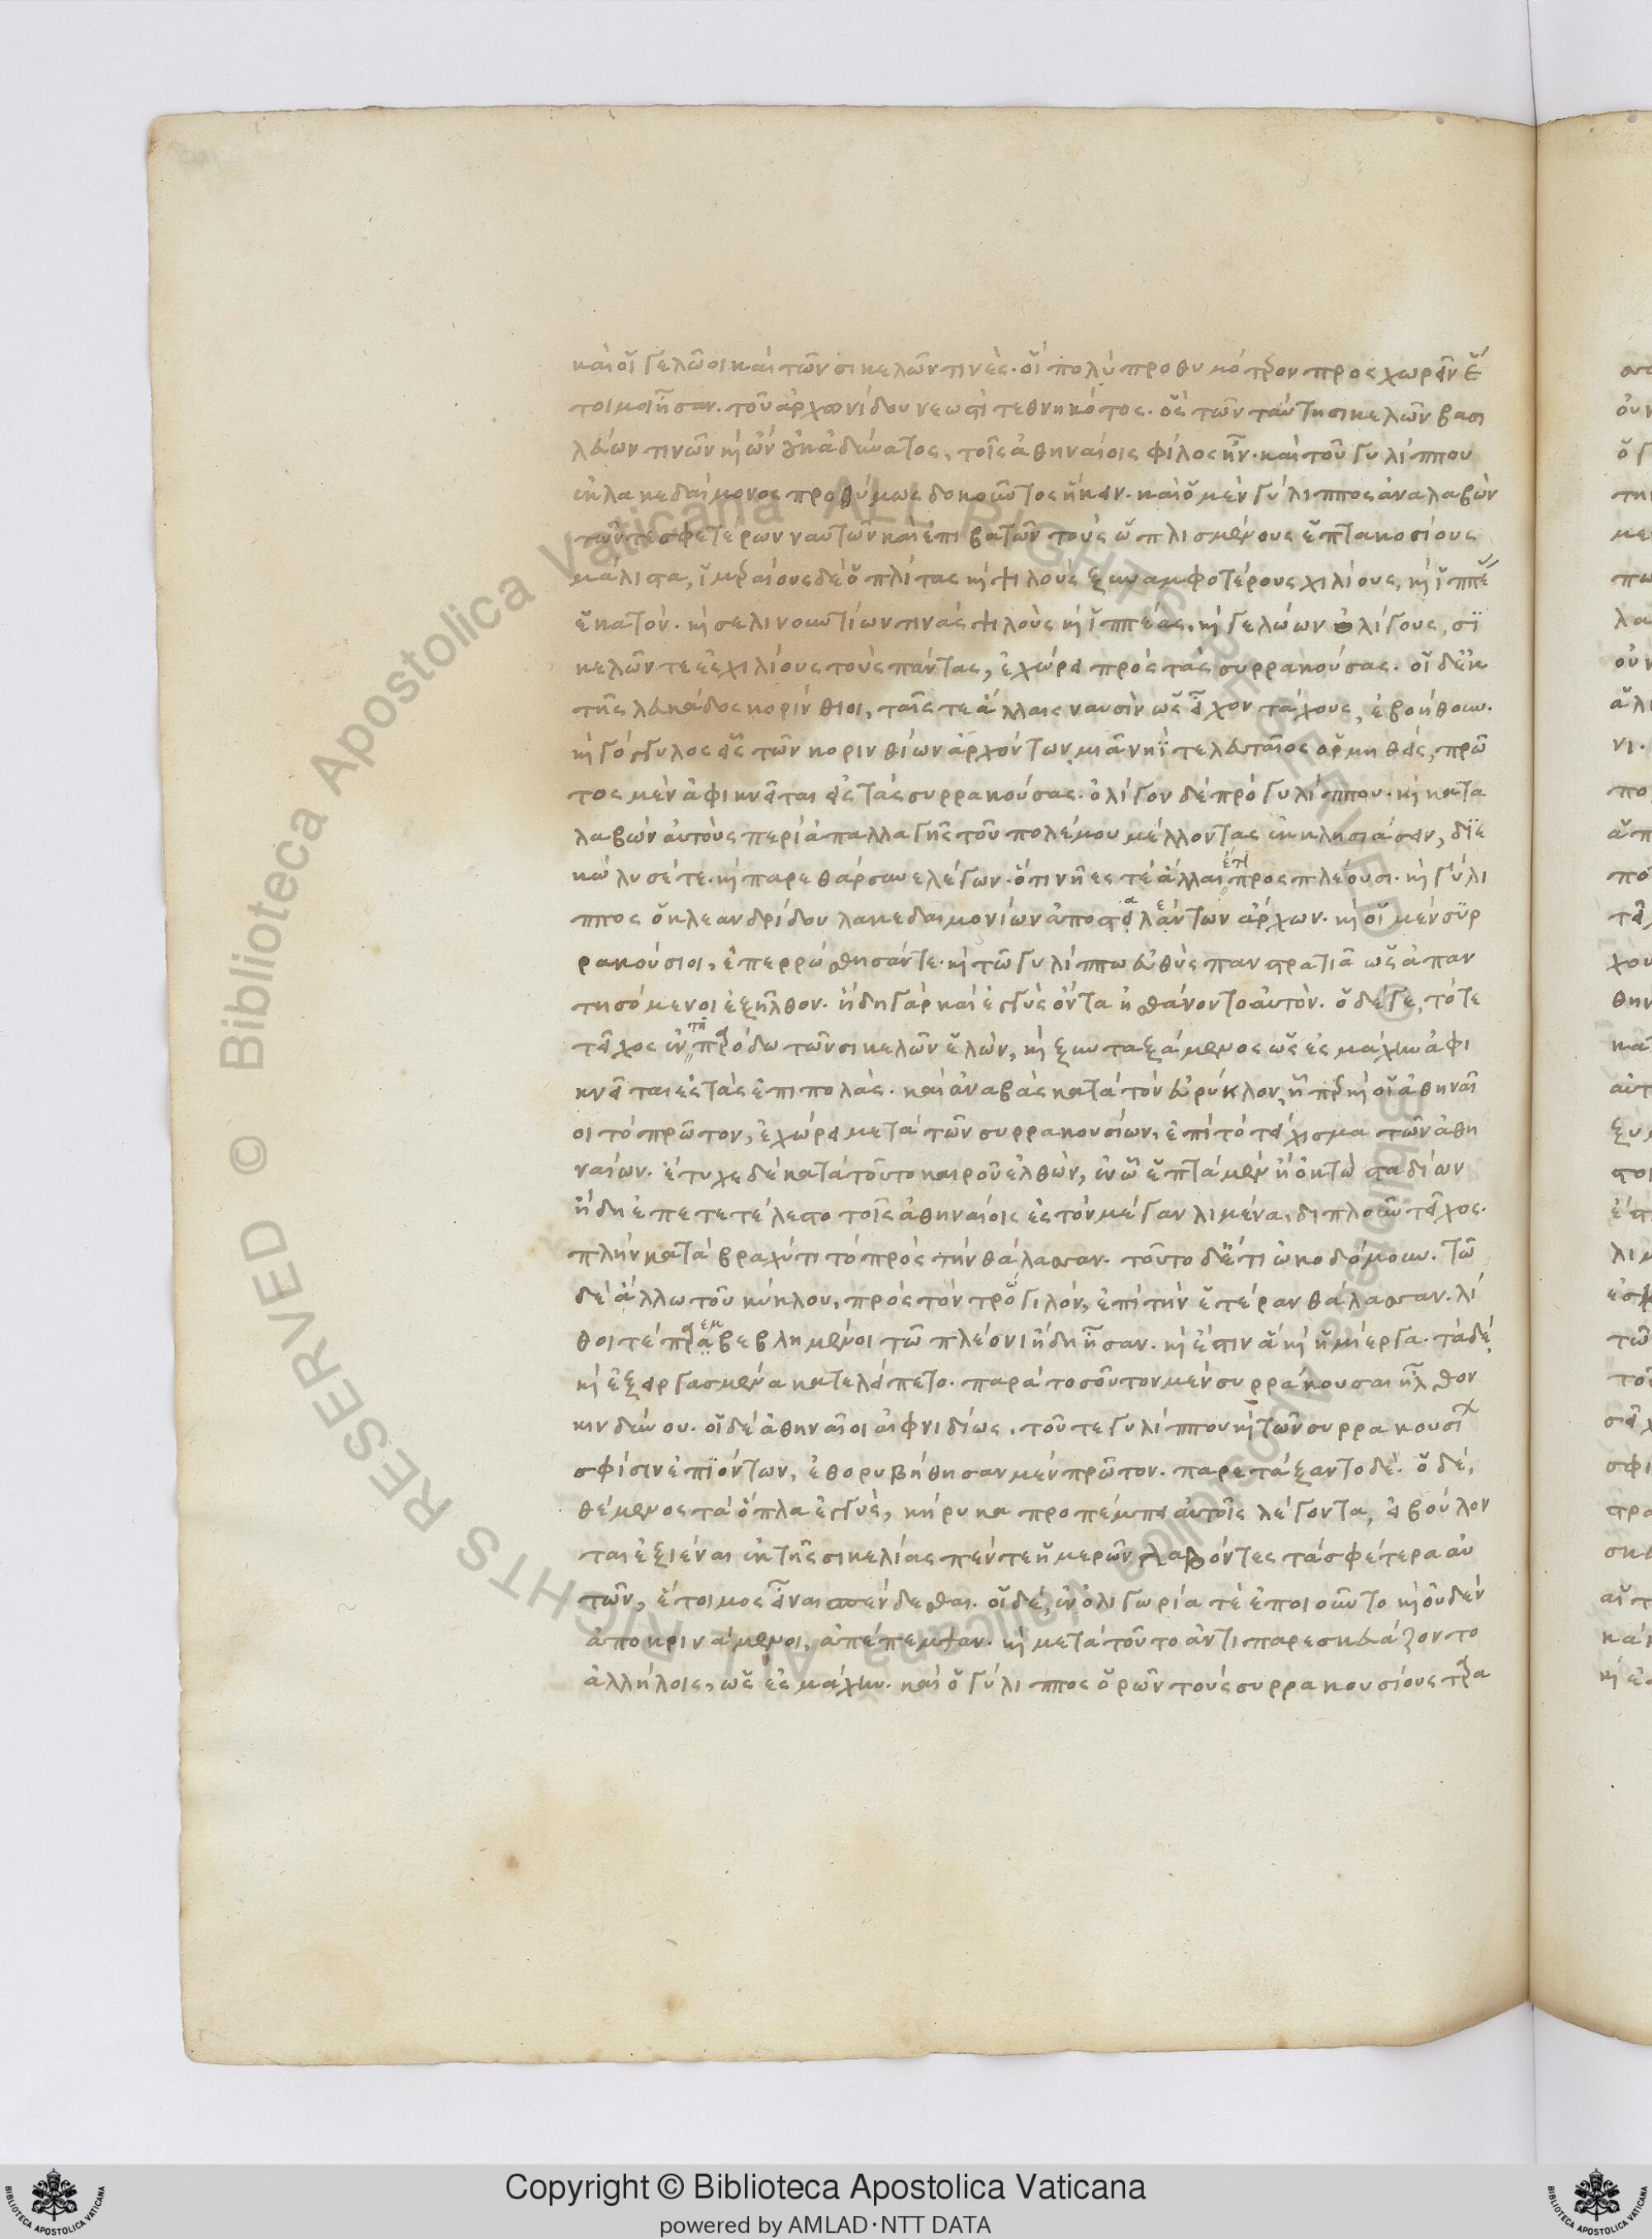 καὶ οἱ γελῶοι καὶ τῶν σικελῶν τινὲς· οἳ πολὺ προθυμότερον προσχωρεῖν ἑ
τοῖμοι ἦσαν. τοῦ ἀρχωνίδου νεωστὶ τεθνηκότος· ὃς τῶν ταύτη σικελῶν βασι
λεύων τινῶν καὶ ὢν οὐκ ἀδύνατος, τοῖς ἀθηναίοις φίλος ἦν· καὶ τοῦ γυλίππου
ἐκ λακεδαίμονος προθύμως δοκοῦντος ἥκειν. καὶ ὁ μὲν γύλιππος ἀναλαβὼν
τῶν τε σφετέρων ναυτῶν καὶ ἐπιβατῶν τοὺς ὡπλισμένους ἑπτακοσίους
μάλιστα, ἱμεραίους δὲ ὁπλίτας καὶ ψιλοὺς ξυναμφοτέρους χιλίους, καὶ ἱππέας
ἑκατόν. καὶ σελινουντίων τινὰς ψιλοὺς καὶ ἱππέας. καὶ γελώων ὀλίγους, σι
κελῶν τε ἐς χιλίους τοὺς πάντας, ἐχώρει πρὸς τὰς συρρακούσας. οἱ δ' ἐκ
τῆς λευκάδος κορίνθιοι, ταῖς τε ἄλλαις ναυσὶν ὡς εἶχον τάχους, ἐβοήθουν.
καὶ γόγγυλος εἷς τῶν κορινθίων ἀρχόντων, μιᾷ νηῒ τελευταῖος ὁρμηθείς, πρῶ
τος μὲν ἀφικνεῖται εἰς τὰς συρρακούσας. ὀλίγον δὲ πρὸ γυλίππου. καὶ κατα
λαβὼν αὐτοὺς περὶ ἀπαλλαγῆς τοῦ πολέμου μέλλοντας ἐκκλησιάσειν, διε
κώλυσέ τε. καὶ παρεθάρσυνε λέγων· ὅτι νῆές τε ἄλλαι ἔτι προσπλέουσι. καὶ γύλι
ππος ὁ κλεανδρίδου λακεδαιμονίων ἀποστειλάντων ἄρχων. καὶ οἱ μὲν συρ
ρακούσιοι, ἐπερρώσθησάν τε. καὶ τῷ γυλίππῳ εὐθὺς πανστρατιᾷ ὡς ἀπαν
τησόμενοι ἐξῆλθον. ἤδη γὰρ καὶ ἐγγὺς ὄντα ᾐσθάνοντο αὐτόν. ὁ δέ γε, τότε
τεῖχος ἐν τῇ παρόδῳ τῶν σικελῶν ἑλών, καὶ ξυνταξάμενος ὡς ἐς μάχην ἀφι
κνεῖται ἐς τὰς ἐπιπολάς. καὶ ἀναβὰς κατὰ τὸν εὐρύκλον, ᾗπερ καὶ οἱ ἀθηναῖ
οι τὸ πρῶτον, ἐχώρει μετὰ τῶν συρρακουσίων, ἐπὶ τὸ τείχισμα τῶν ἀθη
ναίων. ἔτυχε δὲ κατὰ τοῦτο καιροῦ ἐλθών, ἐν ᾧ ἑπτὰ μὲν ἢ ὀκτὼ σταδίων
ἤδη ἐπετετέλεστο τοῖς ἀθηναίοις ἐς τὸν μέγαν λιμένα, διπλοῦν τεῖχος.
πλὴν κατὰ βραχύ τι τὸ πρὸς τὴν θάλασσαν. τοῦτο δ' ἔτι ᾠκοδόμουν. τῷ
δὲ ἄλλῳ τοῦ κύκλου, πρὸς τὸν τρώγιλον, ἐπὶ τὴν ἑτέραν θάλασσαν. λί
θοι τε παραβεβλημένοι τῷ πλέονι ἤδη ἦσαν. καὶ ἔστιν ἃ καὶ ἡμίεργα. τὰ δὲ
καὶ ἐξειργασμένα κατελείπετο. παρὰ τοσοῦτον μὲν συρράκουσαι ἦλθον
κινδύνου. οἱ δὲ ἀθηναῖοι αἰφνιδίως. τοῦ τε γυλίππου καὶ τῶν συρρακουσίων
σφίσιν ἐπϊόντων, ἐθορυβήθησαν μὲν πρῶτον. παρετάξαντο δέ. ὁ δέ,
θέμενος τὰ ὅπλα ἐγγύς, κήρυκα προπέμπει αὐτοῖς λέγοντα, εἰ βούλον
ται ἐξιέναι ἐκ τῆς σικελίας πέντε ἡμερῶν λαβόντες τὰ σφέτερα αὐ
τῶν, ἕτοιμος εἶναι σπένδεσθαι. οἱ δέ, ἐν ὀλιγωρίᾳ τε ἐποιοῦντο καὶ οὐδὲν
ἀποκρινάμενοι, ἀπέπεμψαν. καὶ μετὰ τοῦτο ἀντιπαρεσκευάζοντο
ἀλλήλοις, ὡς ἐς μάχην. καὶ ὁ γύλιππος ὁρῶν τοὺς συρρακουσίους ταρα
Copyright © Biblioteca Apostolica Vaticana
powered by AMLAD·NTT DATA